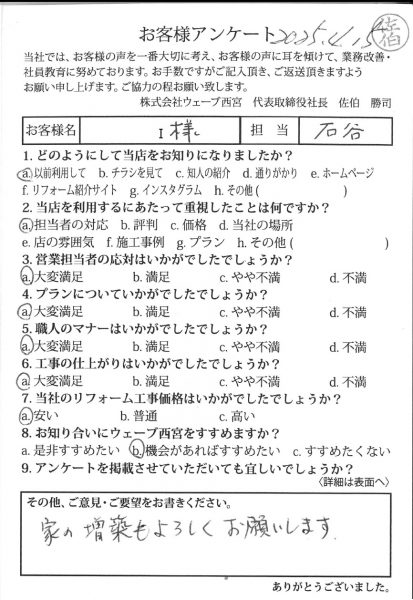 お客様アンケート 2025.4.15 佐伯
当社では、お客様の声を一番大切に考え、お客様の声に耳を傾けて、業務改善・
社員教育に努めております。お手数ですがご記入頂き、ご返送頂きますよう
お願い申し上げます。ご協力の程お願い致します。
株式会社ウェーブ西宮 代表取締役社長 佐伯 勝司
お客様名 I 様 担当 石谷
1. どのようにして当店をお知りになりましたか?
a. 以前利用して b. チラシを見て c. 知人の紹介 d. 通りがかり e. ホームページ
f. リフォーム紹介サイト g. インスタグラム h. その他 ( )
2. 当店を利用するにあたって重視したことは何ですか?
a. 担当者の対応 b. 評判 c. 価格 d. 当社の場所
e. 店の雰囲気 f. 施工事例 g. プラン h. その他 ( )
3. 営業担当者の応対はいかがでしたでしょうか?
a. 大変満足 b. 満足 c. やや不満 d. 不満
4. プランについていかがでしたでしょうか?
a. 大変満足 b. 満足 c. やや不満 d. 不満
5. 職人のマナーはいかがでしたでしょうか?
a. 大変満足 b. 満足 c. やや不満 d. 不満
6. 工事の仕上がりはいかがでしたでしょうか?
a. 大変満足 b. 満足 c. やや不満 d. 不満
7. 当社のリフォーム工事価格はいかがでしたでしょうか?
a. 安い b. 普通 c. 高い
8. お知り合いにウェーブ西宮をすすめますか?
a. 是非すすめたい b. 機会があればすすめたい c. すすめたくない
9. アンケートを掲載させていただいても宜しいでしょうか?
〈詳細は表面へ〉
その他、ご意見・ご要望をお書きください。
家の増築もよろしくお願いします
ありがとうございました。